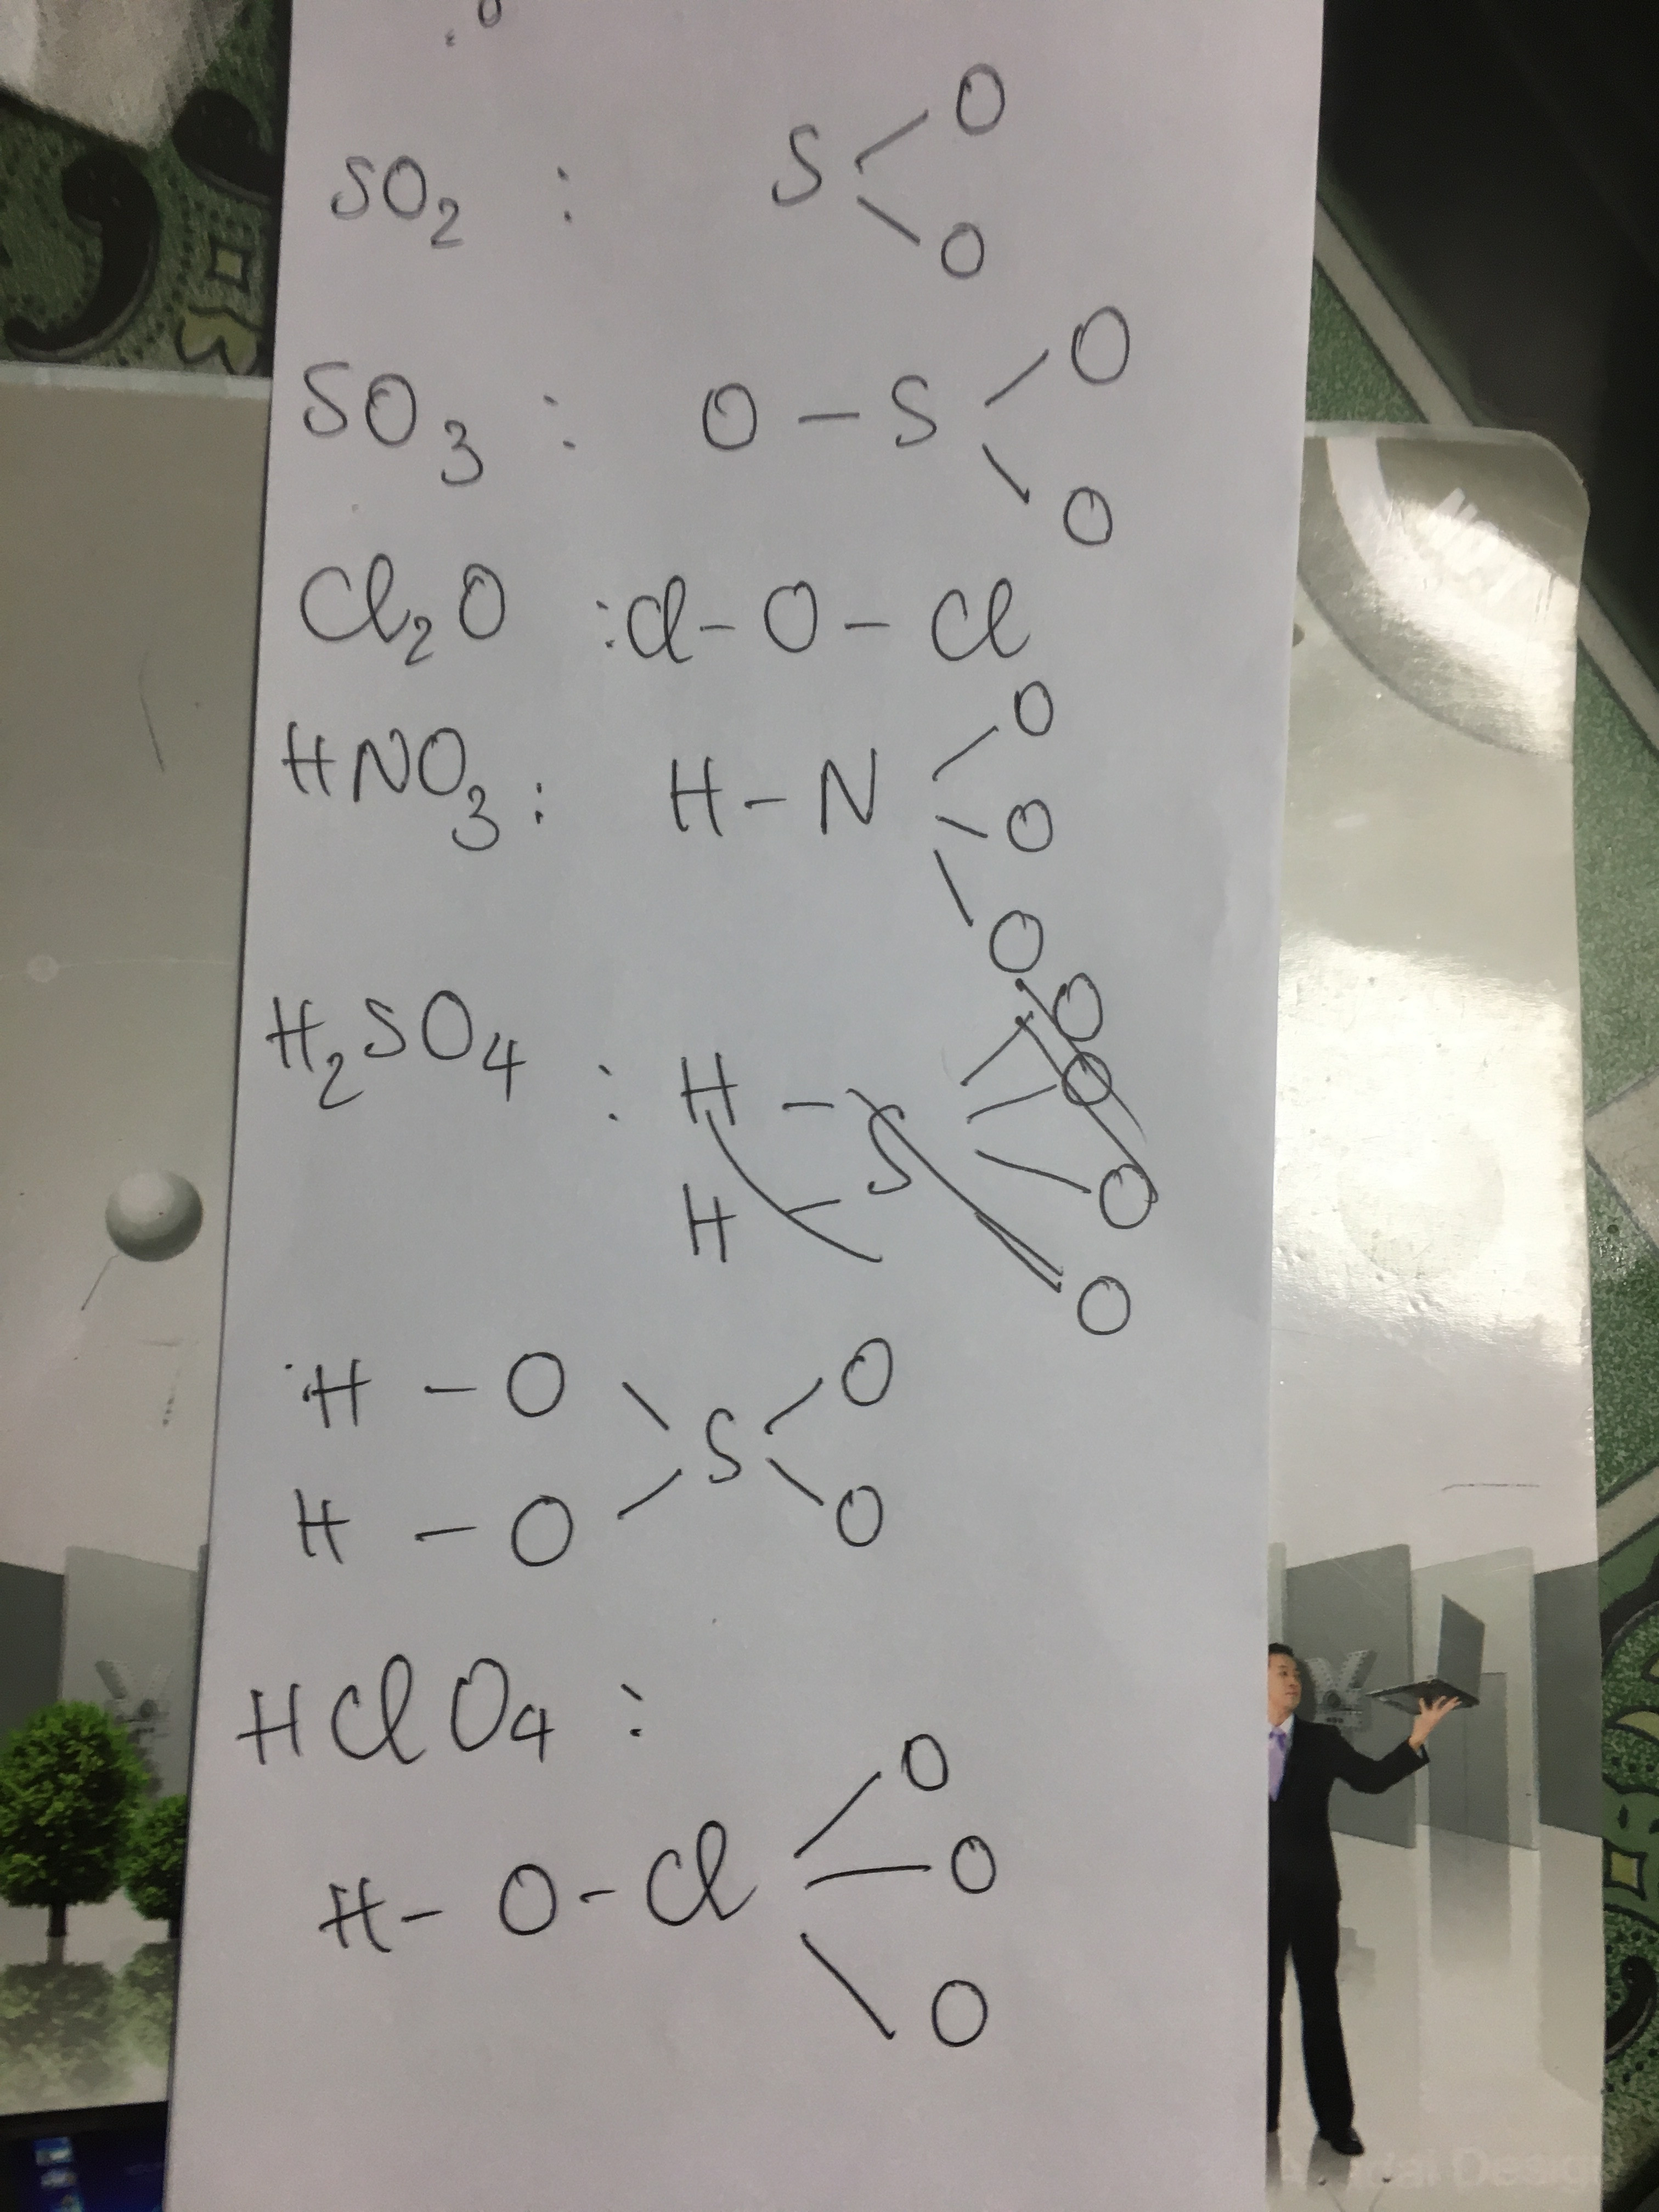 SO₂ : S O O
SO₃ : O – S O O
Cl₂O : Cl – O – Cl
HNO₃ : H – N O O O
H₂SO₄ : H – S O O O O
H
H – O S O
H – O O
HClO₄ :
H – O – Cl O O O